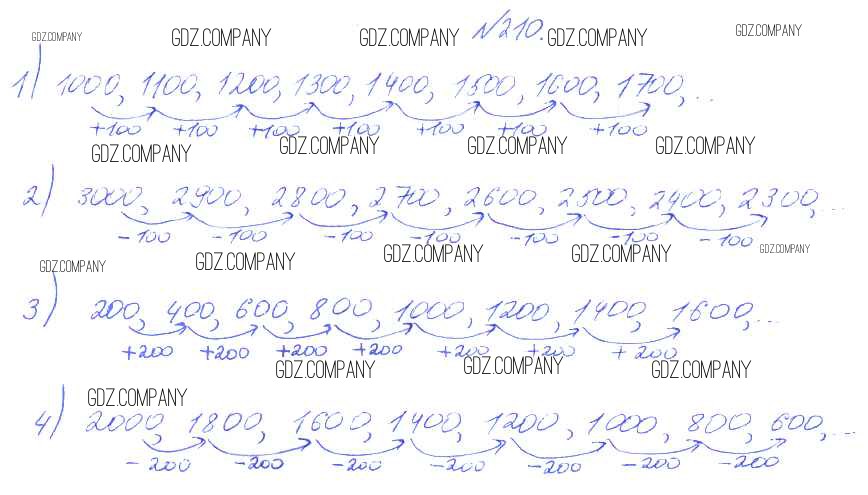 №210.
GDZ.COMPANY GDZ.COMPANY GDZ.COMPANY GDZ.COMPANY GDZ.COMPANY
1) 1000, 1100, 1200, 1300, 1400, 1500, 1600, 1700, ...
+100 +100 +100 +100 +100 +100 +100
GDZ.COMPANY GDZ.COMPANY GDZ.COMPANY GDZ.COMPANY
2) 3000, 2900, 2800, 2700, 2600, 2500, 2400, 2300, ...
-100 -100 -100 -100 -100 -100 -100
GDZ.COMPANY GDZ.COMPANY GDZ.COMPANY GDZ.COMPANY GDZ.COMPANY
3) 200, 400, 600, 800, 1000, 1200, 1400, 1600, ...
+200 +200 +200 +200 +200 +200 +200
GDZ.COMPANY GDZ.COMPANY GDZ.COMPANY GDZ.COMPANY
4) 2000, 1800, 1600, 1400, 1200, 1000, 800, 600, ...
-200 -200 -200 -200 -200 -200 -200